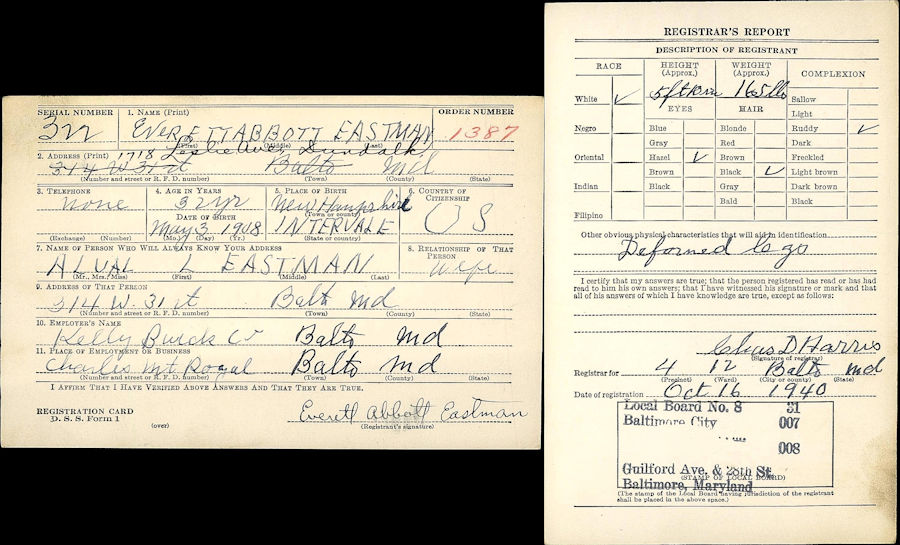 SERIAL NUMBER 1. NAME (Print) ORDER NUMBER
EVERETT ABBOTT EASTMAN 1387
(First) (Middle) (Last)
1718 Leslie Ave Dundalk
2. ADDRESS (Print)
314 W. 31 st Balto Md
(Number and street or R. F. D. number) (Town) (County) (State)
3. TELEPHONE 4. AGE IN YEARS 5. PLACE OF BIRTH 6. COUNTRY OF CITIZENSHIP
None 32 New Hampshire U S
(Town or county)
DATE OF BIRTH
May 3 1908 INTERVALE
(Exchange) (Number) (Mo.) (Day) (Yr.) (State or country)
7. NAME OF PERSON WHO WILL ALWAYS KNOW YOUR ADDRESS 8. RELATIONSHIP OF THAT PERSON
L EASTMAN Wife
(Mr., Mrs., Miss) (First) (Middle) (Last)
9. ADDRESS OF THAT PERSON
314 W. 31 st Balto Md
(Number and street or R. F. D. number) (Town) (County) (State)
10. EMPLOYER'S NAME
Kelly Buick Co Balto Md
11. PLACE OF EMPLOYMENT OR BUSINESS
Charles Mt Royal Balto Md
(Number and street or R. F. D. number) (Town) (County) (State)
I AFFIRM THAT I HAVE VERIFIED ABOVE ANSWERS AND THAT THEY ARE TRUE.
REGISTRATION CARD
D. S. S. Form 1
(over)
Everett Abbott Eastman
(Registrant's signature)
REGISTRAR'S REPORT
DESCRIPTION OF REGISTRANT
RACE HEIGHT (Approx.) WEIGHT (Approx.) COMPLEXION
White ✓ 5 ft 165 lb Sallow
EYES HAIR Light
Negro Blue Blonde Ruddy ✓
Gray Red Dark
Oriental Hazel ✓ Brown Freckled
Brown Black ✓ Light brown
Indian Black Gray Dark brown
Bald Black
Filipino
Other obvious physical characteristics that will aid in identification
Deformed
I certify that my answers are true; that the person registered has read or has had
read to him his own answers; that I have witnessed his signature or mark and that
all of his answers of which I have knowledge are true, except as follows:
Chas D Harris
(Signature of registrar)
Registrar for 4 12 Balto Md
(Precinct) (Ward) (City or county) (State)
Date of registration Oct 16 1940
Local Board No. 8 31
Baltimore City 007
008
Guilford Ave. & 28th St.
(STAMP OF LOCAL BOARD)
Baltimore, Maryland
(The stamp of the Local Board having jurisdiction of the registrant
shall be placed in the above space.)